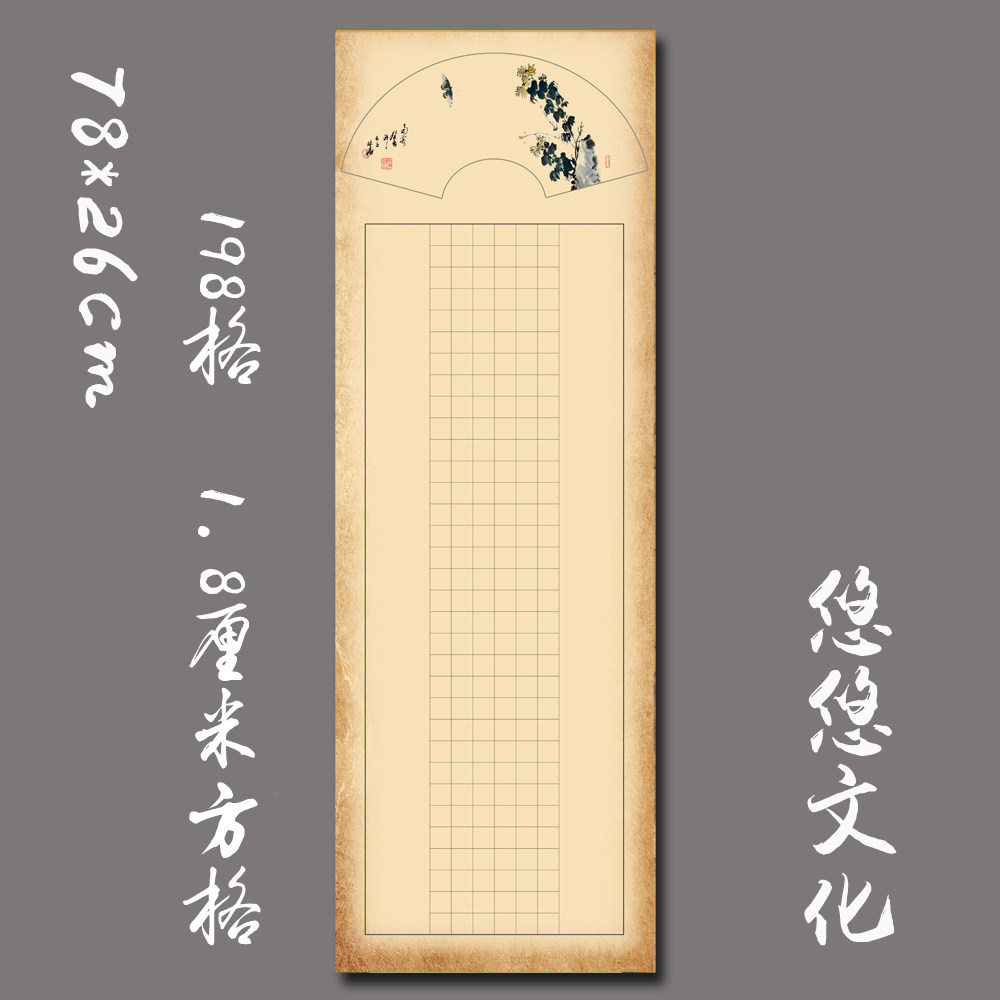 78*26cm
198格
1.8厘米方格
悠悠文化